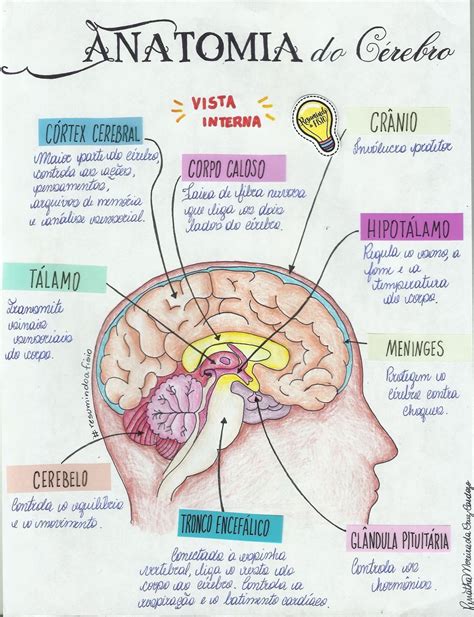 ANATOMIA do Cérebro
VISTA
INTERNA
Resumindo
a FISIO
CRÂNIO
Invólucro protetor
CÓRTEX CEREBRAL
Maior parte do cérebro,
controla as ações,
pensamentos,
arquivos de memória
e análise sensorial.
CORPO CALOSO
Faixa de fibra nervosa
que liga os dois
lados do cérebro.
HIPOTÁLAMO
Regula o sono, a
fome e a
temperatura
do corpo.
TÁLAMO
Transmite
sinais
sensoriais
do corpo.
MENINGES
Protegem o
cérebro contra
choques.
#resumindoafisio
CEREBELO
Controla o equilíbrio
e o movimento.
TRONCO ENCEFÁLICO
Conectado à espinha
vertebral, liga o resto do
corpo ao cérebro. Controla a
respiração e o batimento cardíaco.
GLÂNDULA PITUITÁRIA
Controla os
hormônios.